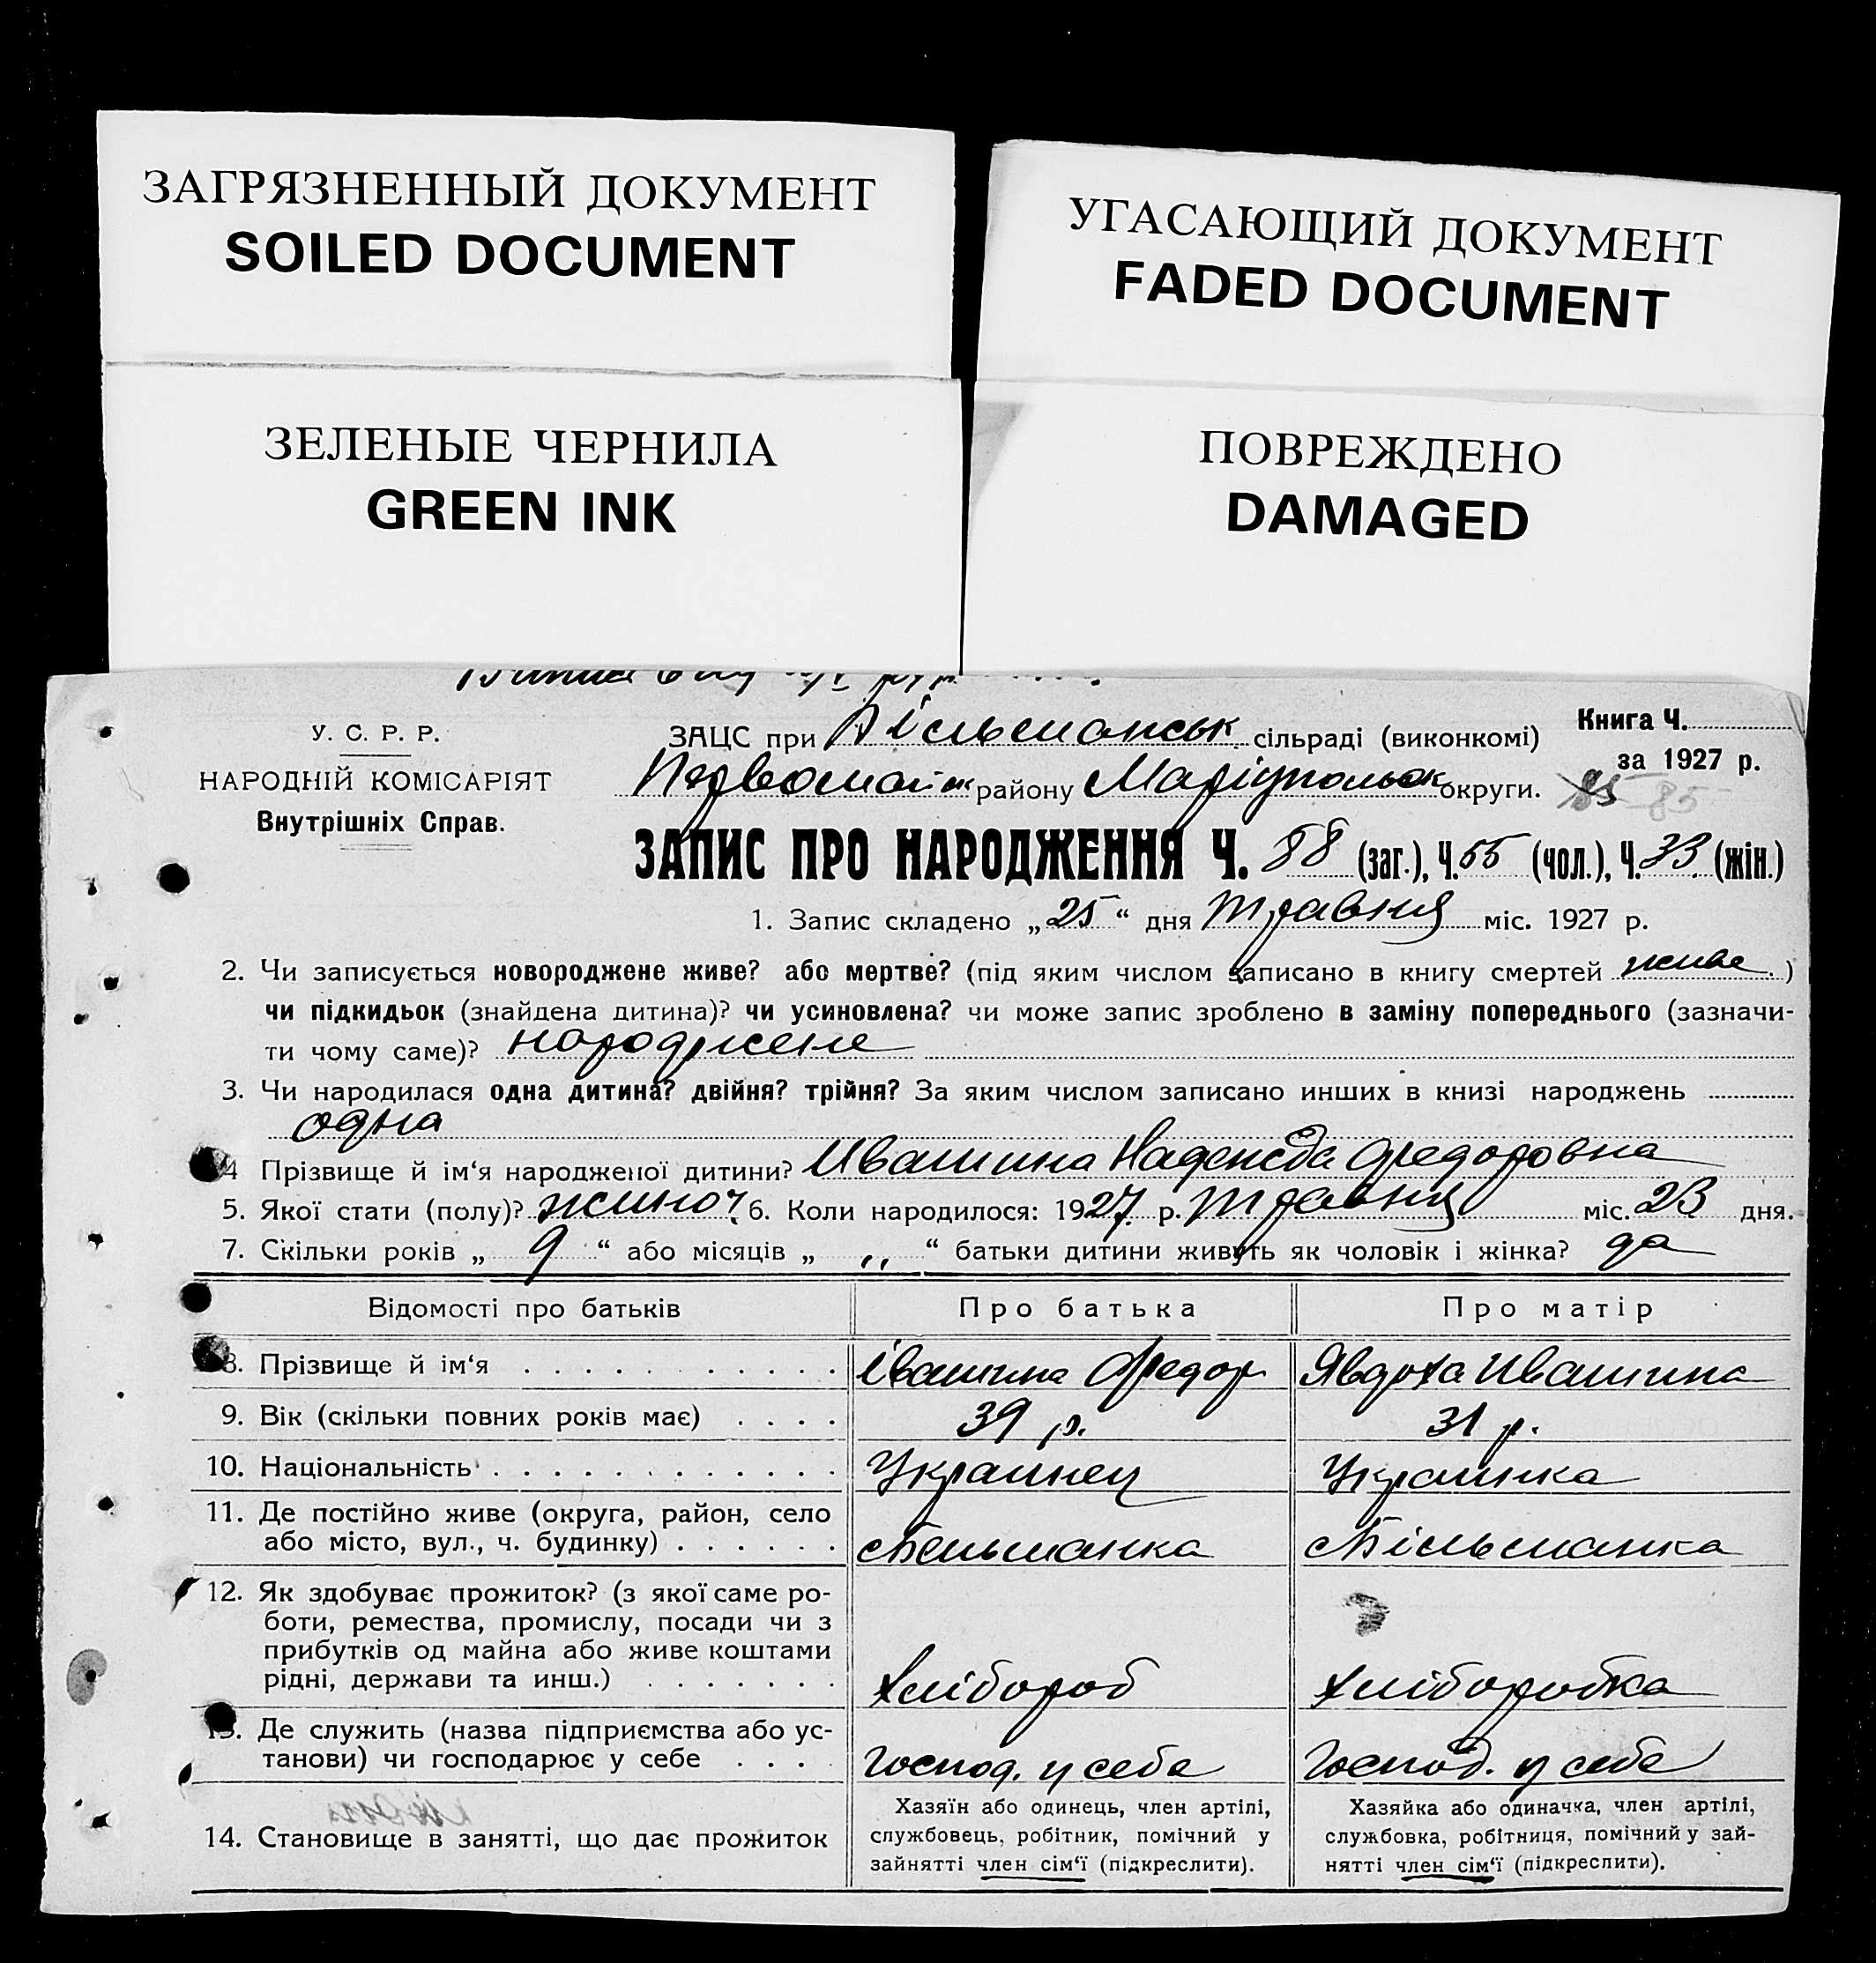 ЗАГРЯЗНЕННЫЙ ДОКУМЕНТ
SOILED DOCUMENT
УГАСАЮЩИЙ ДОКУМЕНТ
FADED DOCUMENT
ЗЕЛЕНЫЕ ЧЕРНИЛА
GREEN INK
ПОВРЕЖДЕНО
DAMAGED
У. С. Р. Р.
НАРОДНІЙ КОМІСАРІЯТ
Внутрішніх Справ.
ЗАЦС при сільраді (виконкомі)
Книга Ч.
за 1927 р.
району округи. 85
ЗАПИС ПРО НАРОДЖЕННЯ Ч. 88 (заг.), Ч. 55 (чол.), Ч. 33 (жін.)
1. Запис складено „25“ дня травня міс. 1927 р.
2. Чи записується новороджене живе? або мертве? (під яким числом записано в книгу смертей живе)
чи підкидьок (знайдена дитина)? чи усиновлена? чи може запис зроблено в заміну попереднього (зазначи-
ти чому саме)? народжене
3. Чи народилася одна дитина? двійня? трійня? За яким числом записано инших в книзі народжень
одна
4 Прізвище й ім‘я народженої дитини? Ивашина Надежда Федоровна
5. Якої стати (полу)? жиноч. 6. Коли народилося: 1927 р. травня міс. 23 дня.
7. Скільки років „ 9 “ або місяців „ ,, “ батьки дитини живуть як чоловік і жінка? да
Відомості про батьків Про батька Про матір
8. Прізвище й ім‘я Івашина Федор Явдоха Ивашина
9. Вік (скільки повних років має) 39 р. 31 р.
10. Національність Украинец Украинка
11. Де постійно живе (округа, район, село
або місто, вул., ч. будинку)
12. Як здобуває прожиток? (з якої саме ро-
боти, ремества, промислу, посади чи з
прибутків од майна або живе коштами
рідні, держави та инш.) Хлібороб Хліборобка
13. Де служить (назва підприємства або ус-
танови) чи господарює у себе Господ. у себе Господ. у себе
14. Становище в занятті, що дає прожиток
Хазяїн або одинець, член артілі,
службовець, робітник, помічний у
зайнятті член сім‘ї (підкреслити).
Хазяйка або одиначка, член артілі,
службовка, робітниця, помічний у зай-
нятті член сім‘ї (підкреслити).